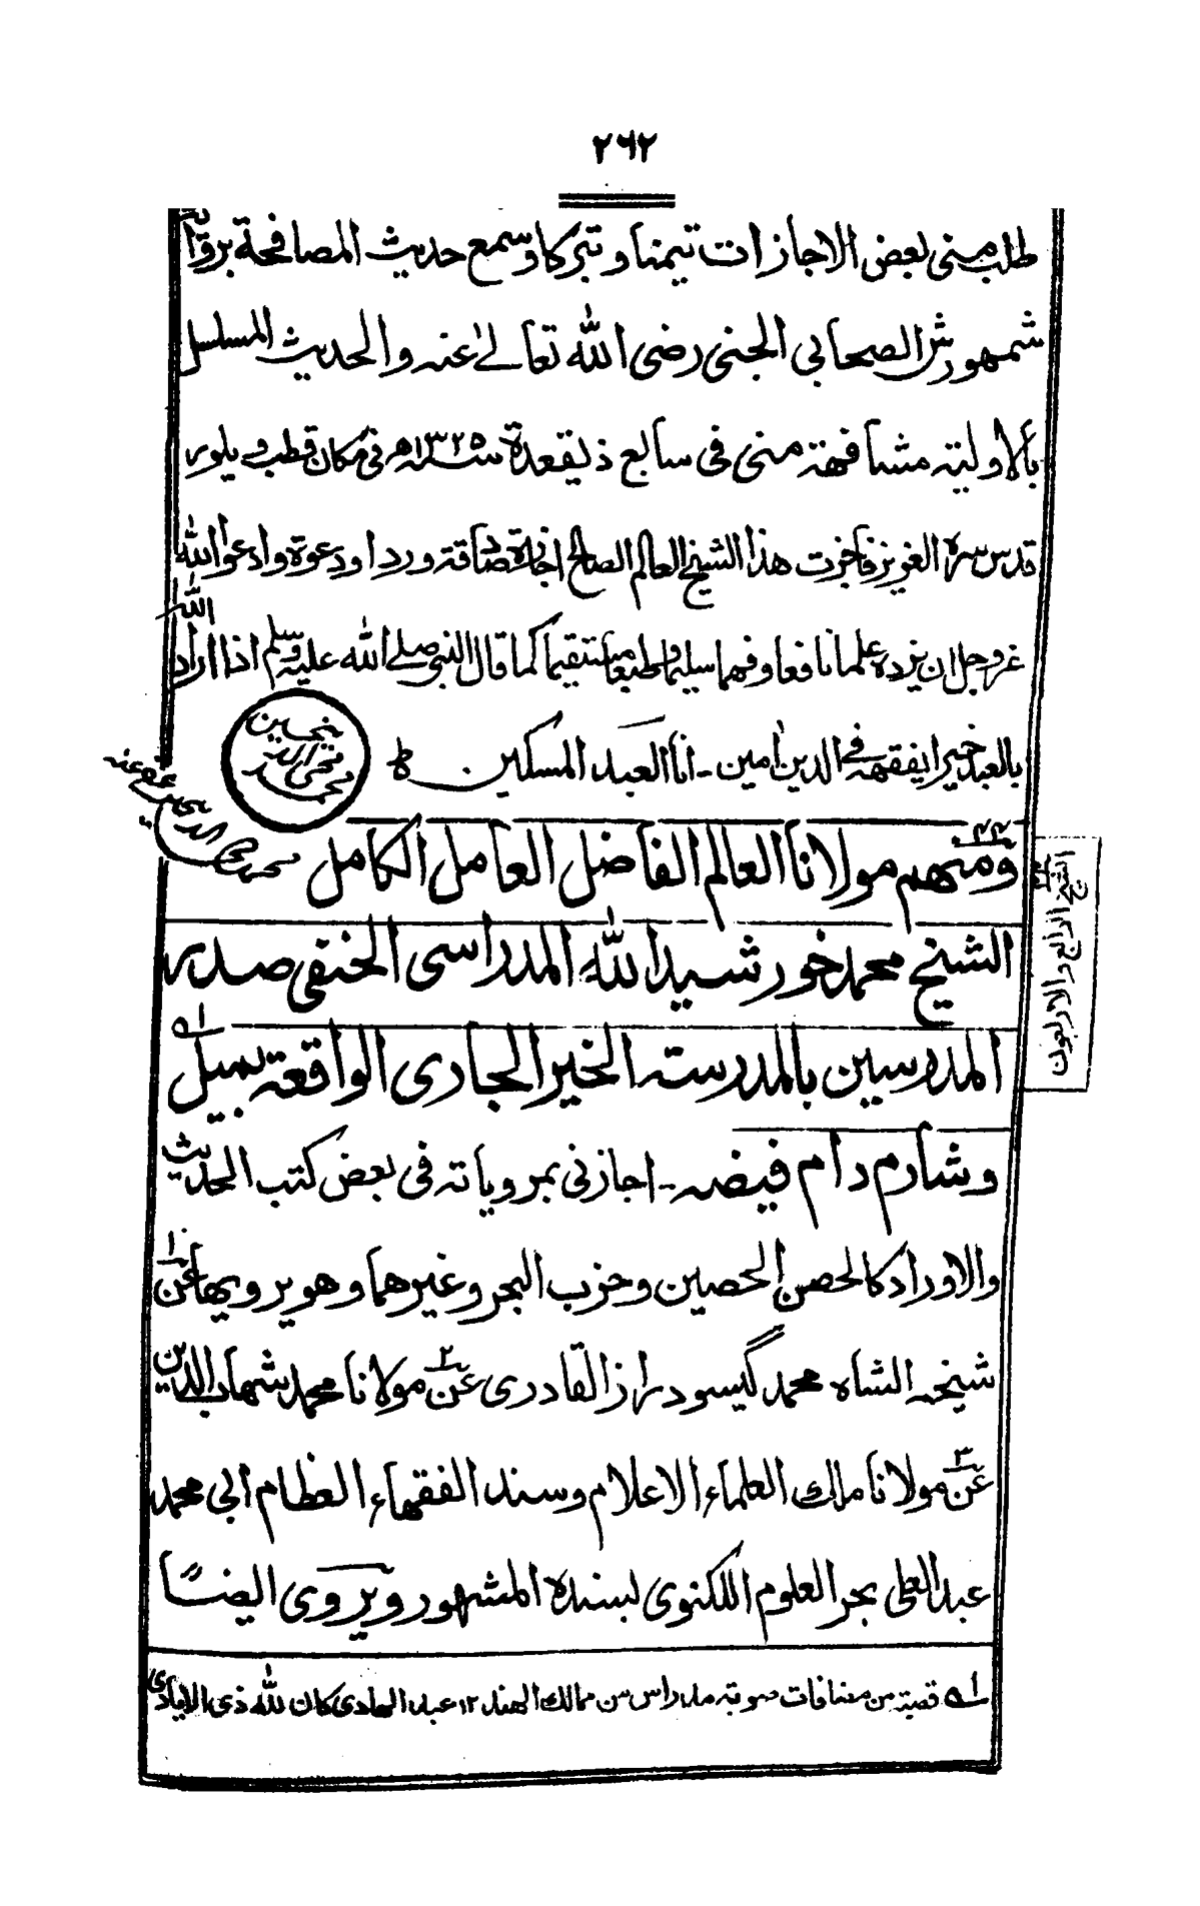 ٢٦٢
طلب منى بعض الاجازات تيمنا وتبركا وسمع حديث المصافحة برواية
شمهورش الصحابي الجنى رضى الله تعالے عنه والحديث المسلسل
بالاولية مشافهة منى فى سابع ذيقعدة سنه ١٣٢٥ه فى مكان قطب ويلور
قدس سره العزيز فاجزت هذا الشيخ العالم الصالح اجازة وردا ودعوة وادعوا الله
عزوجل ان يزده علما نافعا وفهما سليما وطبعا مستقيما كما قال النبى صلے الله عليه وسلم اذا اراد الله
بالعبد خيرا يفقهه فے الدين اٰمين ـ انا العبد المسكين
محمد محى الدين حسين
محمد محى الدين حسين عفى عنه
ومنهم مولانا العالم الفاضل العامل الكامل
٤٤
الشيخ الرابع والاربعون
الشيخ محمد خورشيد الله المدراسى الحنفى صدر
المدرسين بالمدرسة الخير الجارى الواقعة بميل ١ه
وشارم دام فيضه ـ اجازنى بمروياته فى بعض كتب الحديث
والاوراد كالحصن الحصين وحزب البحر وغيرهما وهو يرويها عن ١
شيخه الشاه محمد گيسودراز القادرى عن ٢ مولانا محمد شهاب الدين
عن ٣ مولانا ملك العلماء الاعلام وسند الفقهاء العظام ابى محمد
عبد العلى بحر العلوم اللكنوى بسنده المشهور ويروى ايضًا
١ه قصبة من مضافات صوبة مدراس من ممالك الهند ١٢ عبد الهادى كان لله ذى الايادى